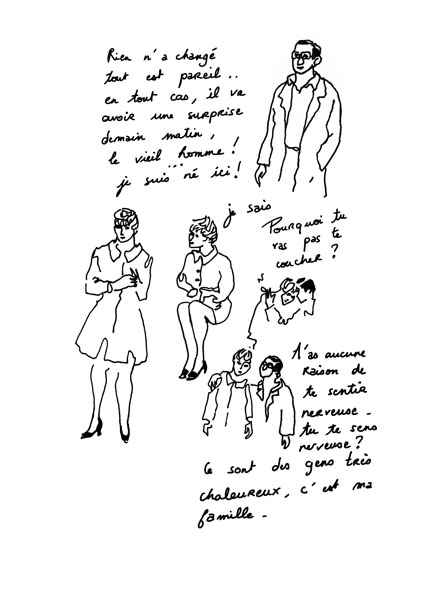 Rien n'a changé
tout est pareil..
en tout cas, il va
avoir une surprise
demain matin,
le vieil homme!
...
je suis né ici!
je sais
Pourquoi tu
vas pas te
coucher?
T'as aucune
raison de
te sentir
nerveuse -
tu te sens
nerveuse?
Ce sont des gens très
chaleureux, c'est ma
famille -